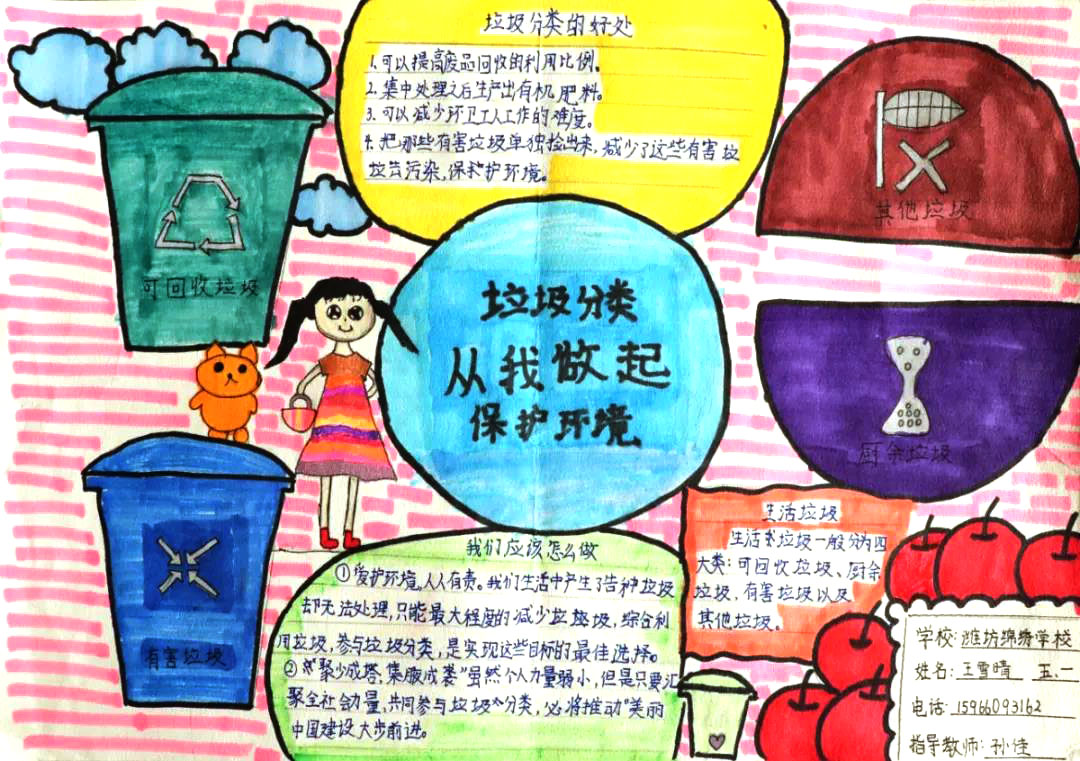 垃圾分类的好处
1.可以提高废品回收的利用比例。
2.集中处理之后生产出有机肥料。
3.可以减少环卫工人工作的难度。
4.把那些有害垃圾单独捡出来,减少了这些有害垃
圾去污染,保护环境。
其他垃圾
可回收垃圾
垃圾分类
从我做起
保护环境
厨余垃圾
有害垃圾
我们应该怎么做
①爱护环境,人人有责。我们生活中产生了各种垃圾
却无法处理,只能最大程度的减少垃圾,综合利
用垃圾,参与垃圾分类,是实现这些目标的最佳选择。
②"聚少成塔,集腋成裘"虽然个人力量弱小,但是只要汇
聚全社会力量,共同参与垃圾分类,必将推动"美丽
中国建设大步前进。
生活垃圾
生活垃圾一般分为四
大类:可回收垃圾、厨余
垃圾、有害垃圾以及
其他垃圾。
学校:潍坊绵绣学校
姓名:王雪晴 五.二
电话:15966093162
指导教师:孙佳